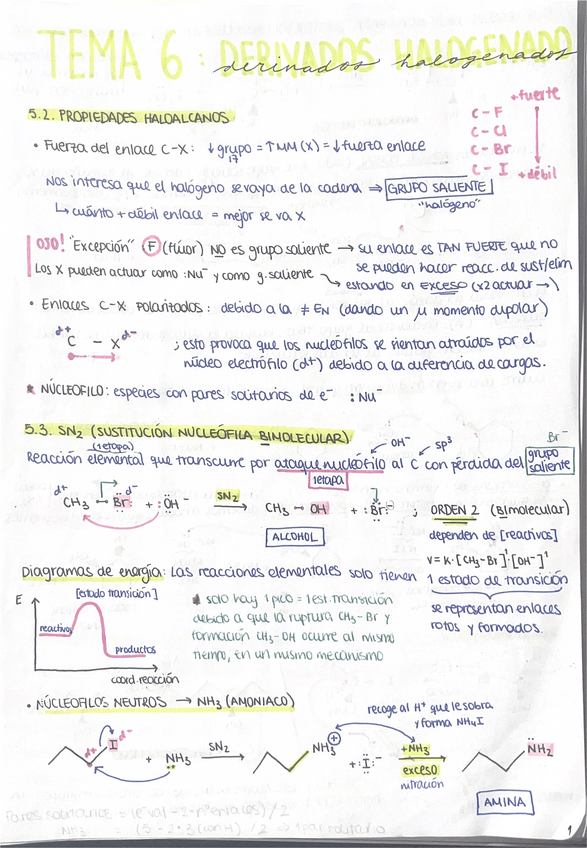 TEMA 6: DERIVADOS HALOGENADO
derivados halogenados
5.2. PROPIEDADES HALOALCANOS
• Fuerza del enlace C-X: ↓grupo 17 = ↑MM (X) = ↓fuerza enlace
+fuerte
C-F
C-Cl
C-Br
C-I
+débil
Nos interesa que el halógeno se vaya de la cadena ⇒ GRUPO SALIENTE
"halógeno"
↳ cuánto + débil enlace = mejor se va X
OJO! "Excepción" F (flúor) NO es grupo saliente → su enlace es TAN FUERTE que no
se pueden hacer reacc. de sust/elim
Los X pueden actuar como :Nu⁻ y como g. saliente
estando en EXCESO (x2 actuar →)
• Enlaces C-X Polarizados: debido a la ≠ EN (dando un μ momento dipolar)
d+ C - X d-
; esto provoca que los nucleófilos se sientan atraídos por el
núcleo electrófilo (d+) debido a la diferencia de cargas.
* NÚCLEÓFILO: especies con pares solitarios de e⁻ :Nu⁻
5.3. SN2 (SUSTITUCIÓN NUCLEÓFILA BINOLECULAR)
(1etapa)
OH⁻
sp³
Br⁻
Reacción elemental que transcurre por ataque nucleófilo al C con pérdida del grupo saliente
1etapa
d+ d-
CH3 - Br + :OH⁻ SN2 → CH3 - OH + :Br:⁻ ; ORDEN 2 (Bimolecular)
ALCOHOL
dependen de [reactivos]
v = K·[CH3-Br]¹·[OH⁻]¹
Diagramas de energía: Las reacciones elementales solo tienen 1 estado de transición
se representan enlaces
rotos y formados.
E
[estado transición]
reactivos
productos
coord. reacción
* solo hay 1 pico = 1 est. transición
debido a que la ruptura CH3-Br y
formación CH3-OH ocurre al mismo
tiempo, en un mismo mecanismo
• NÚCLEÓFILOS NEUTROS → NH3 (AMONIACO)
recoge al H⁺ que le sobra
y forma NH4I
d+ I d- + NH3 SN2 → NH3 ⊕ + :I:⁻ +NH3 → NH2
exceso
AMINA
Pares solitarios = (e⁻val - 2·nºenlaces)/2
NH3 = (5 - 2·3 (con H) /2 ⇒ 1 par solitario
1